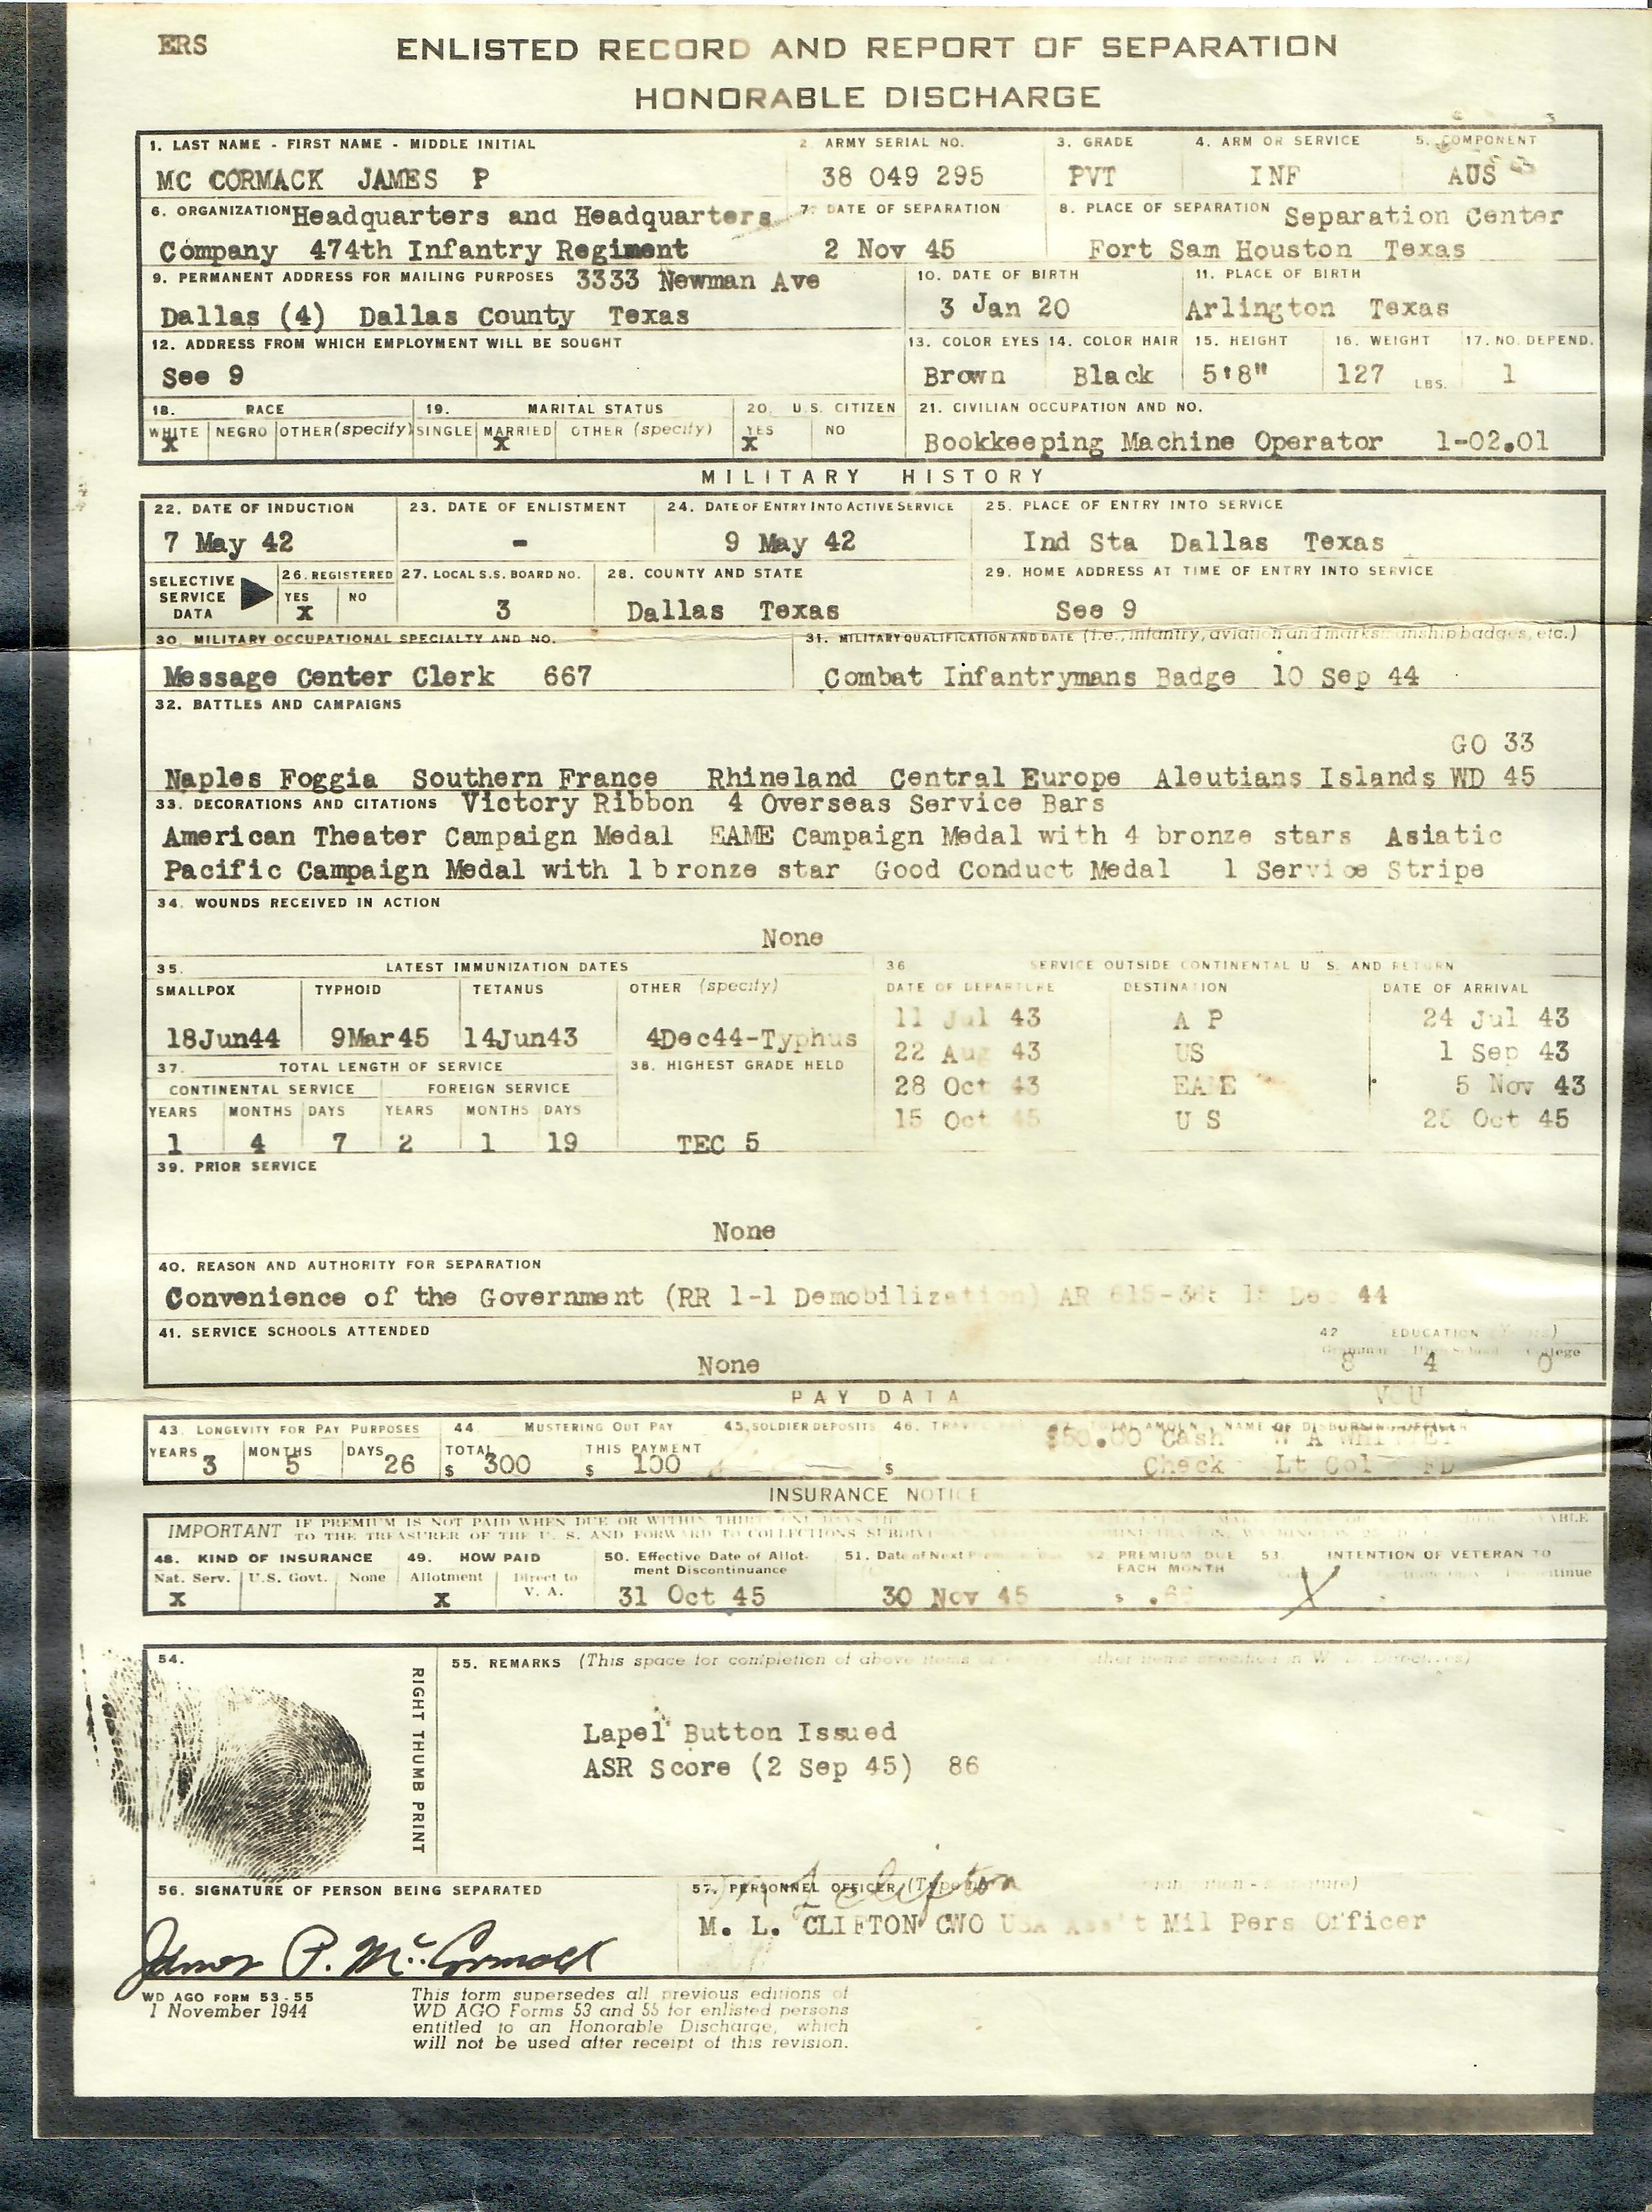 ERS
ENLISTED RECORD AND REPORT OF SEPARATION
HONORABLE DISCHARGE
1. LAST NAME - FIRST NAME - MIDDLE INITIAL 2. ARMY SERIAL NO. 3. GRADE 4. ARM OR SERVICE 5. COMPONENT
MC CORMACK JAMES P 38 049 295 PVT INF AUS
6. ORGANIZATION Headquarters and Headquarters 7. DATE OF SEPARATION 8. PLACE OF SEPARATION Separation Center
Company 474th Infantry Regiment 2 Nov 45 Fort Sam Houston Texas
9. PERMANENT ADDRESS FOR MAILING PURPOSES 3333 Newman Ave 10. DATE OF BIRTH 11. PLACE OF BIRTH
Dallas (4) Dallas County Texas 3 Jan 20 Arlington Texas
12. ADDRESS FROM WHICH EMPLOYMENT WILL BE SOUGHT 13. COLOR EYES 14. COLOR HAIR 15. HEIGHT 16. WEIGHT 17. NO. DEPEND.
See 9 Brown Black 5'8" 127 LBS. 1
18. RACE 19. MARITAL STATUS 20. U.S. CITIZEN 21. CIVILIAN OCCUPATION AND NO.
WHITE NEGRO OTHER (specify) SINGLE MARRIED OTHER (specify) YES NO
X X X Bookkeeping Machine Operator 1-02.01
MILITARY HISTORY
22. DATE OF INDUCTION 23. DATE OF ENLISTMENT 24. DATE OF ENTRY INTO ACTIVE SERVICE 25. PLACE OF ENTRY INTO SERVICE
7 May 42 - 9 May 42 Ind Sta Dallas Texas
SELECTIVE SERVICE DATA 26. REGISTERED 27. LOCAL S.S. BOARD NO. 28. COUNTY AND STATE 29. HOME ADDRESS AT TIME OF ENTRY INTO SERVICE
YES NO
X 3 Dallas Texas See 9
30. MILITARY OCCUPATIONAL SPECIALTY AND NO. 31. MILITARY QUALIFICATION AND DATE (i.e., infantry, aviation and marksmanship badges, etc.)
Message Center Clerk 667 Combat Infantrymans Badge 10 Sep 44
32. BATTLES AND CAMPAIGNS
GO 33
Naples Foggia Southern France Rhineland Central Europe Aleutians Islands WD 45
33. DECORATIONS AND CITATIONS Victory Ribbon 4 Overseas Service Bars
American Theater Campaign Medal EAME Campaign Medal with 4 bronze stars Asiatic
Pacific Campaign Medal with 1 bronze star Good Conduct Medal 1 Service Stripe
34. WOUNDS RECEIVED IN ACTION
None
35. LATEST IMMUNIZATION DATES 36 SERVICE OUTSIDE CONTINENTAL U. S. AND RETURN
SMALLPOX TYPHOID TETANUS OTHER (specify) DATE OF DEPARTURE DESTINATION DATE OF ARRIVAL
11 Jul 43 A P 24 Jul 43
18Jun44 9Mar45 14Jun43 4Dec44-Typhus
22 Aug 43 US 1 Sep 43
37. TOTAL LENGTH OF SERVICE 38. HIGHEST GRADE HELD
CONTINENTAL SERVICE FOREIGN SERVICE 28 Oct 43 EAME 5 Nov 43
YEARS MONTHS DAYS YEARS MONTHS DAYS 15 Oct 45 U S 25 Oct 45
1 4 7 2 1 19 TEC 5
39. PRIOR SERVICE
None
40. REASON AND AUTHORITY FOR SEPARATION
Convenience of the Government (RR 1-1 Demobilization) AR 615-365 15 Dec 44
41. SERVICE SCHOOLS ATTENDED 42 EDUCATION (Years)
Grammar High School College
None 8 4 0
PAY DATA VOU
43. LONGEVITY FOR PAY PURPOSES 44. MUSTERING OUT PAY 45. SOLDIER DEPOSITS 46. TOTAL AMOUNT, NAME OF DISBURSING OFFICER
YEARS MONTHS DAYS TOTAL THIS PAYMENT $50.00 Cash
3 5 26 $ 300 $ 100 $ Check Lt Col FD
INSURANCE NOTICE
IMPORTANT IF PREMIUM IS NOT PAID WHEN DUE OR WITHIN
TO THE TREASURER OF THE U. S. AND FORWARD TO COLLECTIONS
48. KIND OF INSURANCE 49. HOW PAID 50. Effective Date of Allotment Discontinuance 51. Date of Next 52 PREMIUM DUE EACH MONTH 53. INTENTION OF VETERAN TO
Nat. Serv. U.S. Govt. None Allotment Direct to V. A.
X X 31 Oct 45 30 Nov 45 $ X
54.
RIGHT THUMB PRINT
55. REMARKS (This space for completion of above items or other items specified in W. D. Directives)
Lapel Button Issued
ASR Score (2 Sep 45) 86
56. SIGNATURE OF PERSON BEING SEPARATED 57. PERSONNEL OFFICER
M. L. CLIFTON CWO USA Ass't Mil Pers Officer
James P. McCormack
WD AGO FORM 53-55
1 November 1944
This form supersedes all previous editions of
WD AGO Forms 53 and 55 for enlisted persons
entitled to an Honorable Discharge, which
will not be used after receipt of this revision.